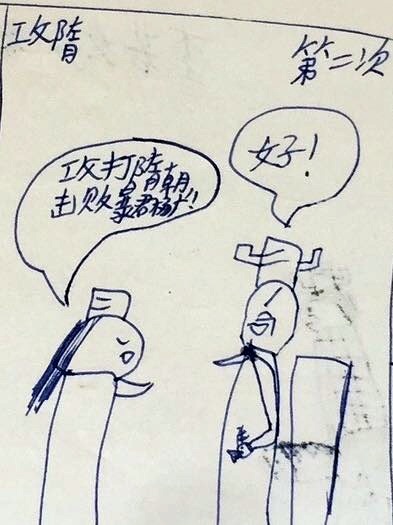 攻隋
第二次
攻打隋朝
击败暴君杨广!!
好!